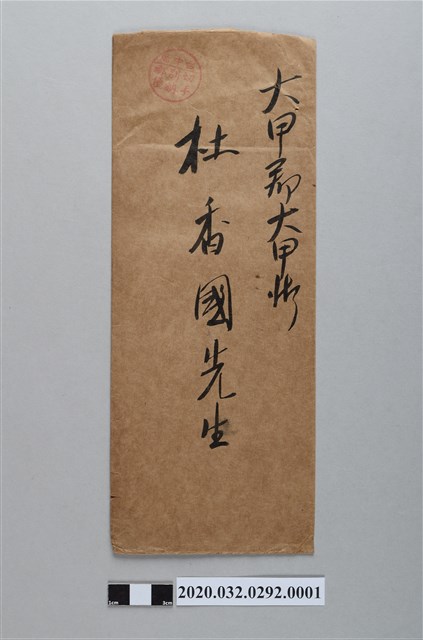 大甲郡大甲街
杜香國先生
1cm
3cm
2020.032.0292.0001